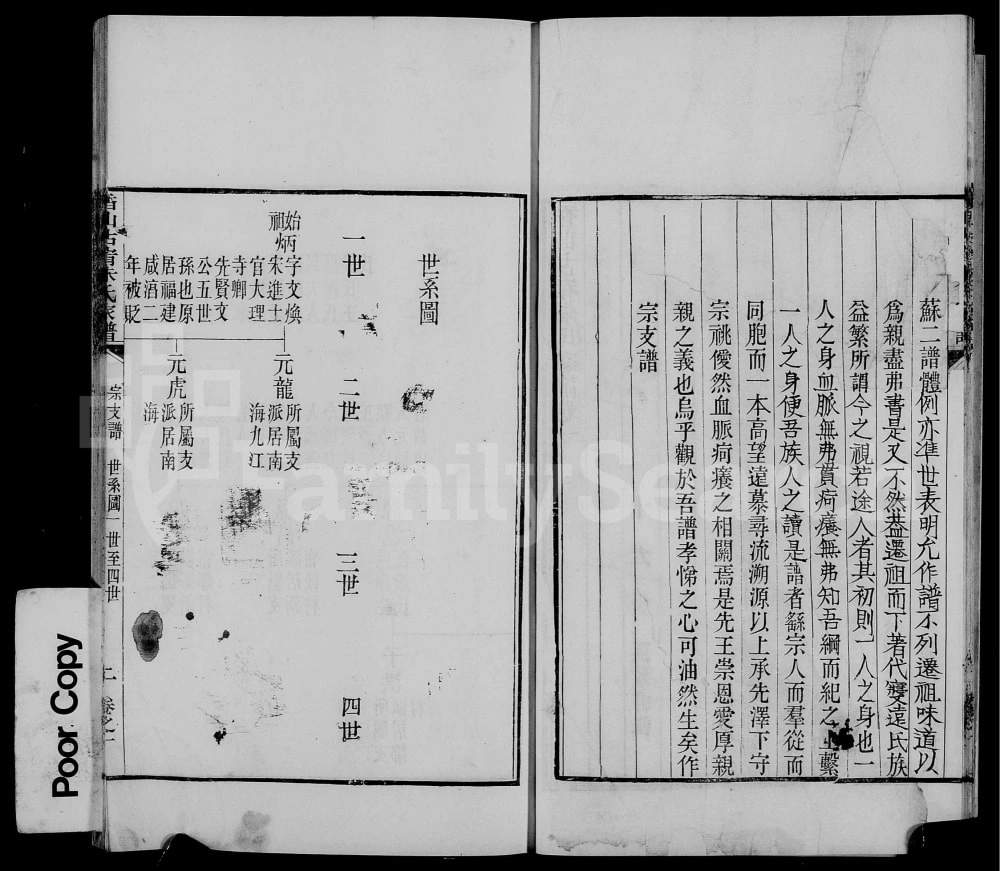 蘇二譜體例亦準世表明允作譜不列遷祖味道以
爲親盡弗書是又不然葢遷祖而下著代寖遠氏族
益繁所謂今之視若途人者其初則一人之身也一
人之身血脈無弗貫疴癢無弗知吾綱而紀之繫
一人之身使吾族人之讀是譜者繇宗人而羣從而
同胞而一本高望遠慕尋流溯源以上承先澤下守
宗祧僾然血脈疴癢之相關焉是先王崇恩愛厚親
親之義也烏乎觀於吾譜孝悌之心可油然生矣作
宗支譜
世系圖
一世
二世
三世
四世
始祖
炳
字文煥
宋進士
官大理
寺卿
先賢文
公五世
孫也原
居福建
咸淳二
年被貶
元龍
所屬支
派居南
海九江
元虎
所屬支
派居南
海
氏家譜
宗支譜
世系圖一世至四世
卷之一
Poor Copy
FamilySearch